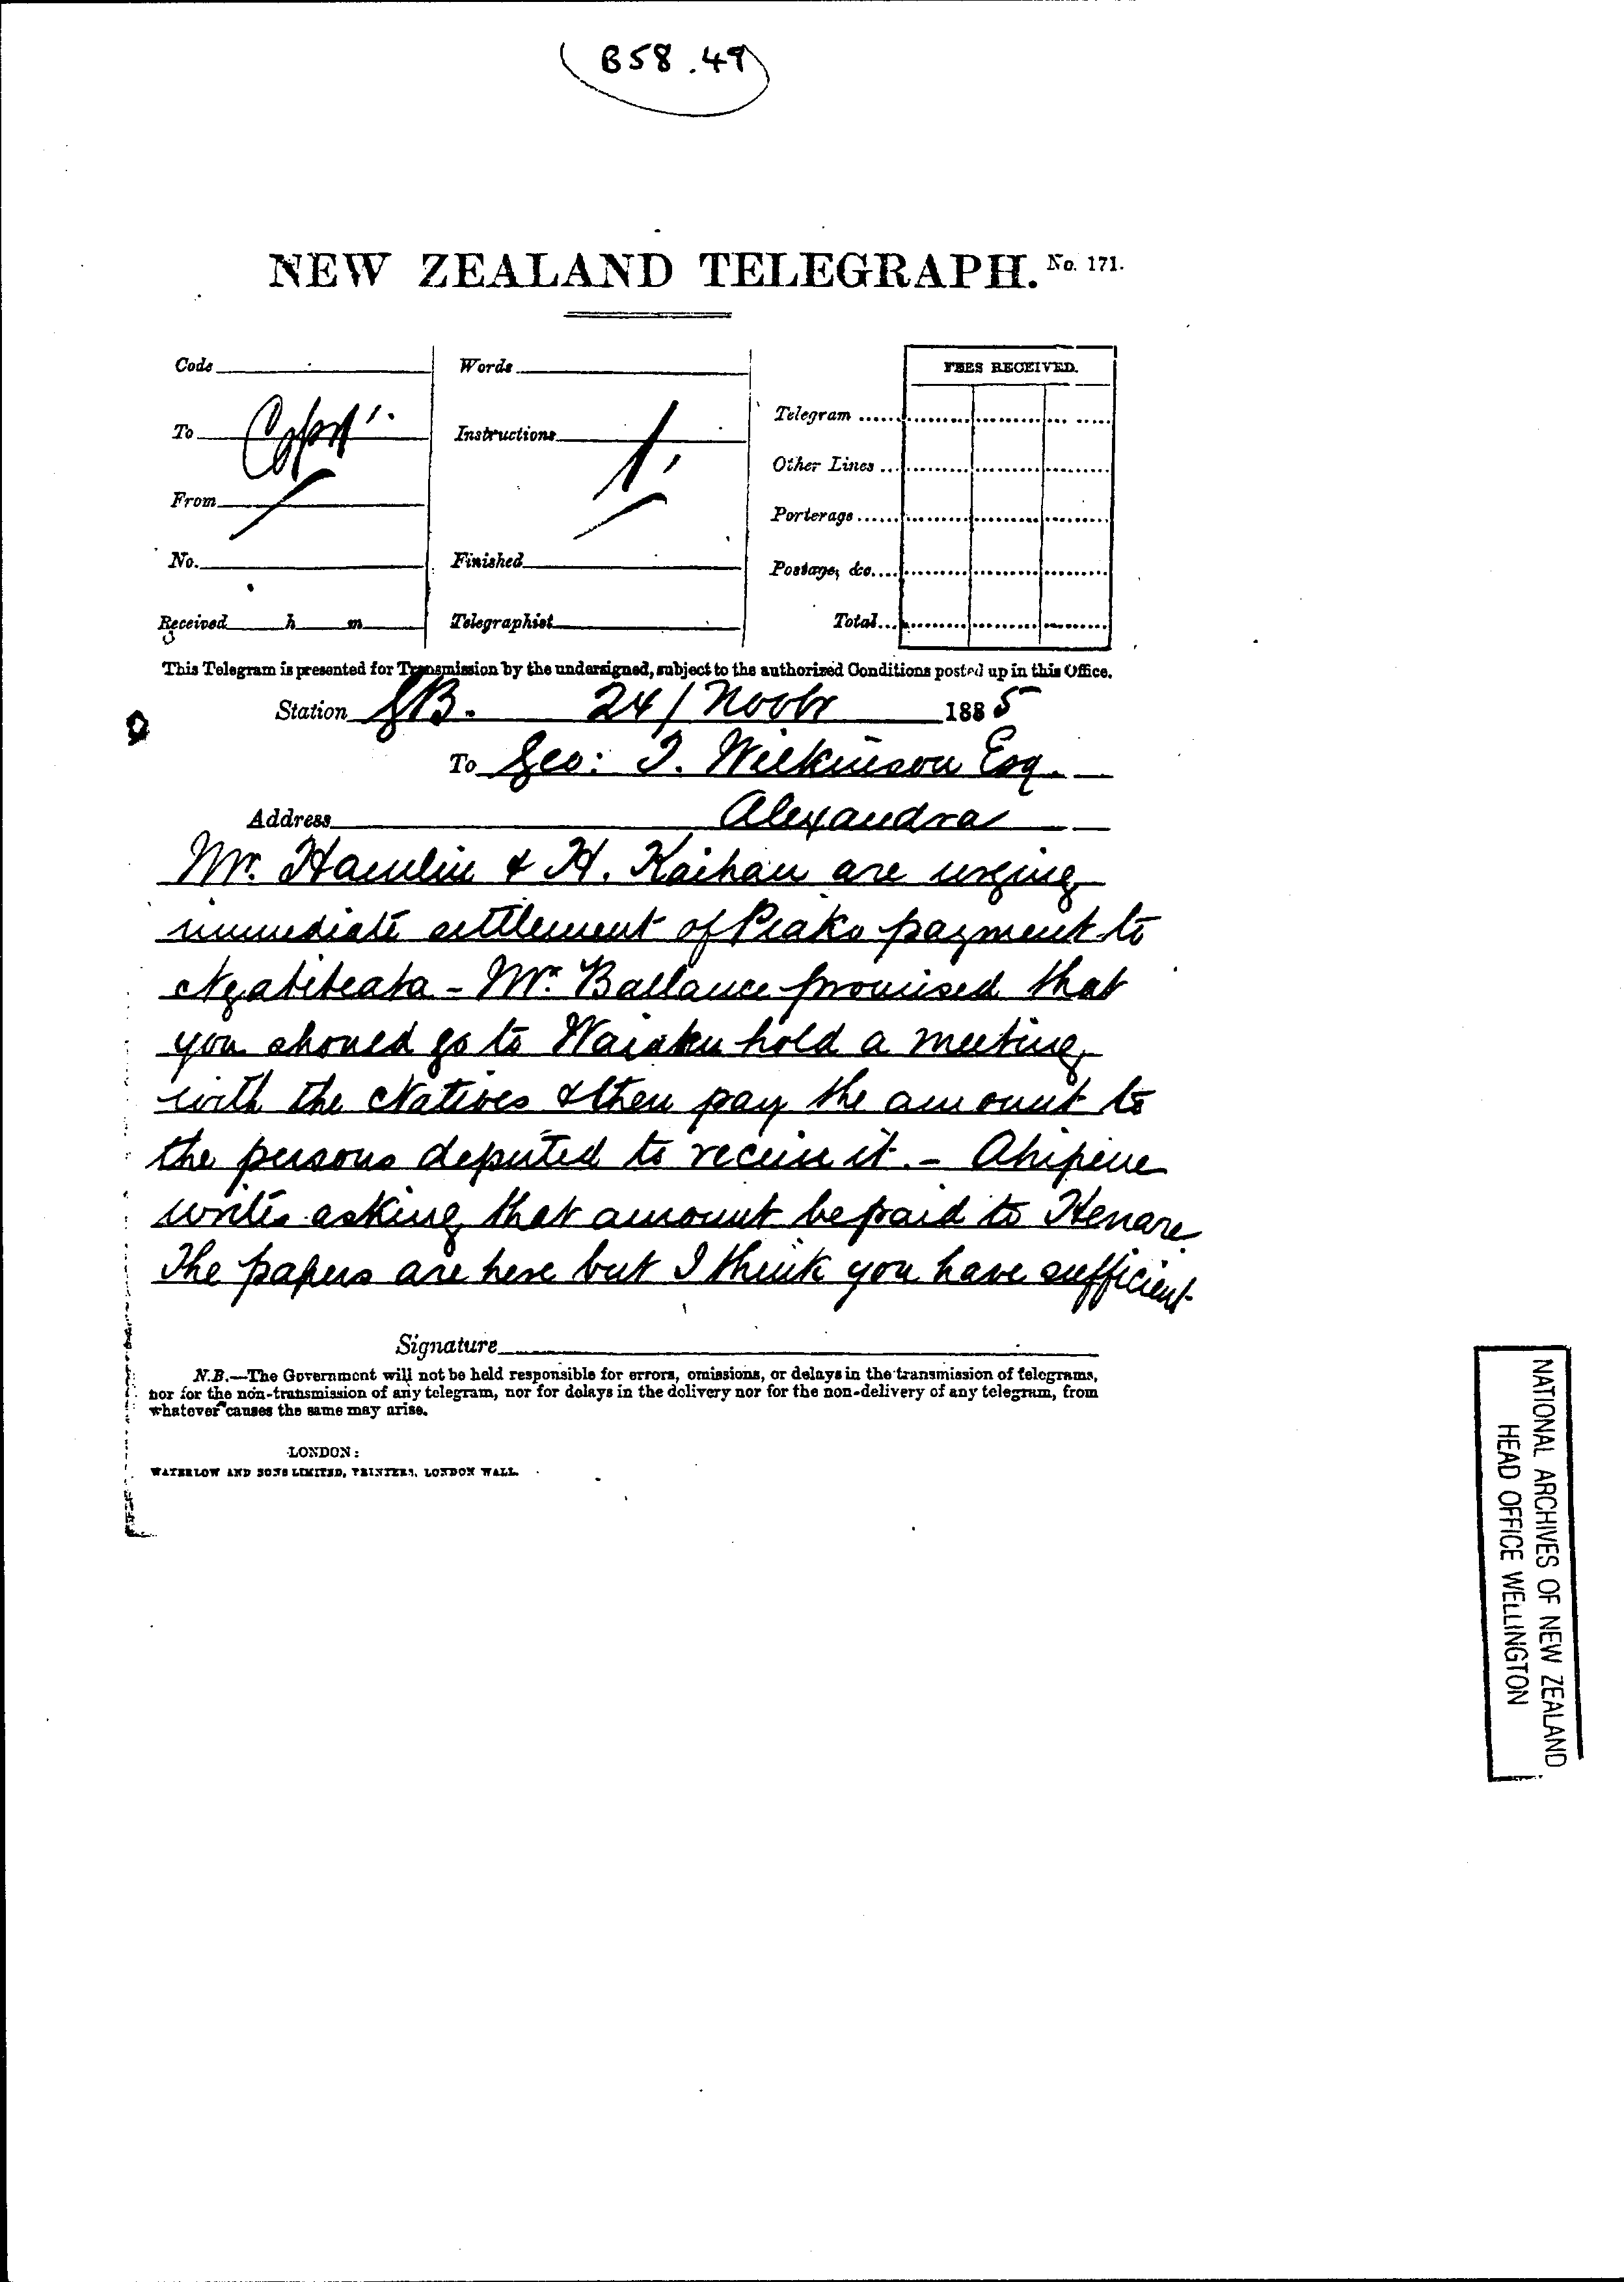 B58.49
NEW ZEALAND TELEGRAPH. No. 171.
Code
Words
FEES RECEIVED.
To Copy
Instructions
Telegram
Other Lines
From
Porterage
No.
Finished
Postage, &c.
Received h m
Telegraphist
Total
This Telegram is presented for Transmission by the undersigned, subject to the authorized Conditions posted up in this Office.
Station GB. 24/Novbr 1885
To Geo: T. Wilkinson Esq.
Address Alexandra
Mr. Hamlin & H. Kaihau are urging
immediate settlement of Piako payment to
Ngatiteata - Mr. Ballance promised that
you should go to Waiuku hold a meeting
with the Natives & then pay the amount to
the persons deputed to receive it. - Ahipene
writes asking that amount be paid to Henare
The papers are here but I think you have sufficient
Signature
N.B.—The Government will not be held responsible for errors, omissions, or delays in the transmission of telegrams,
nor for the non-transmission of any telegram, nor for delays in the delivery nor for the non-delivery of any telegram, from
whatever causes the same may arise.
LONDON:
WATERLOW AND SONS LIMITED, PRINTERS, LONDON WALL.
NATIONAL ARCHIVES OF NEW ZEALAND
HEAD OFFICE WELLINGTON